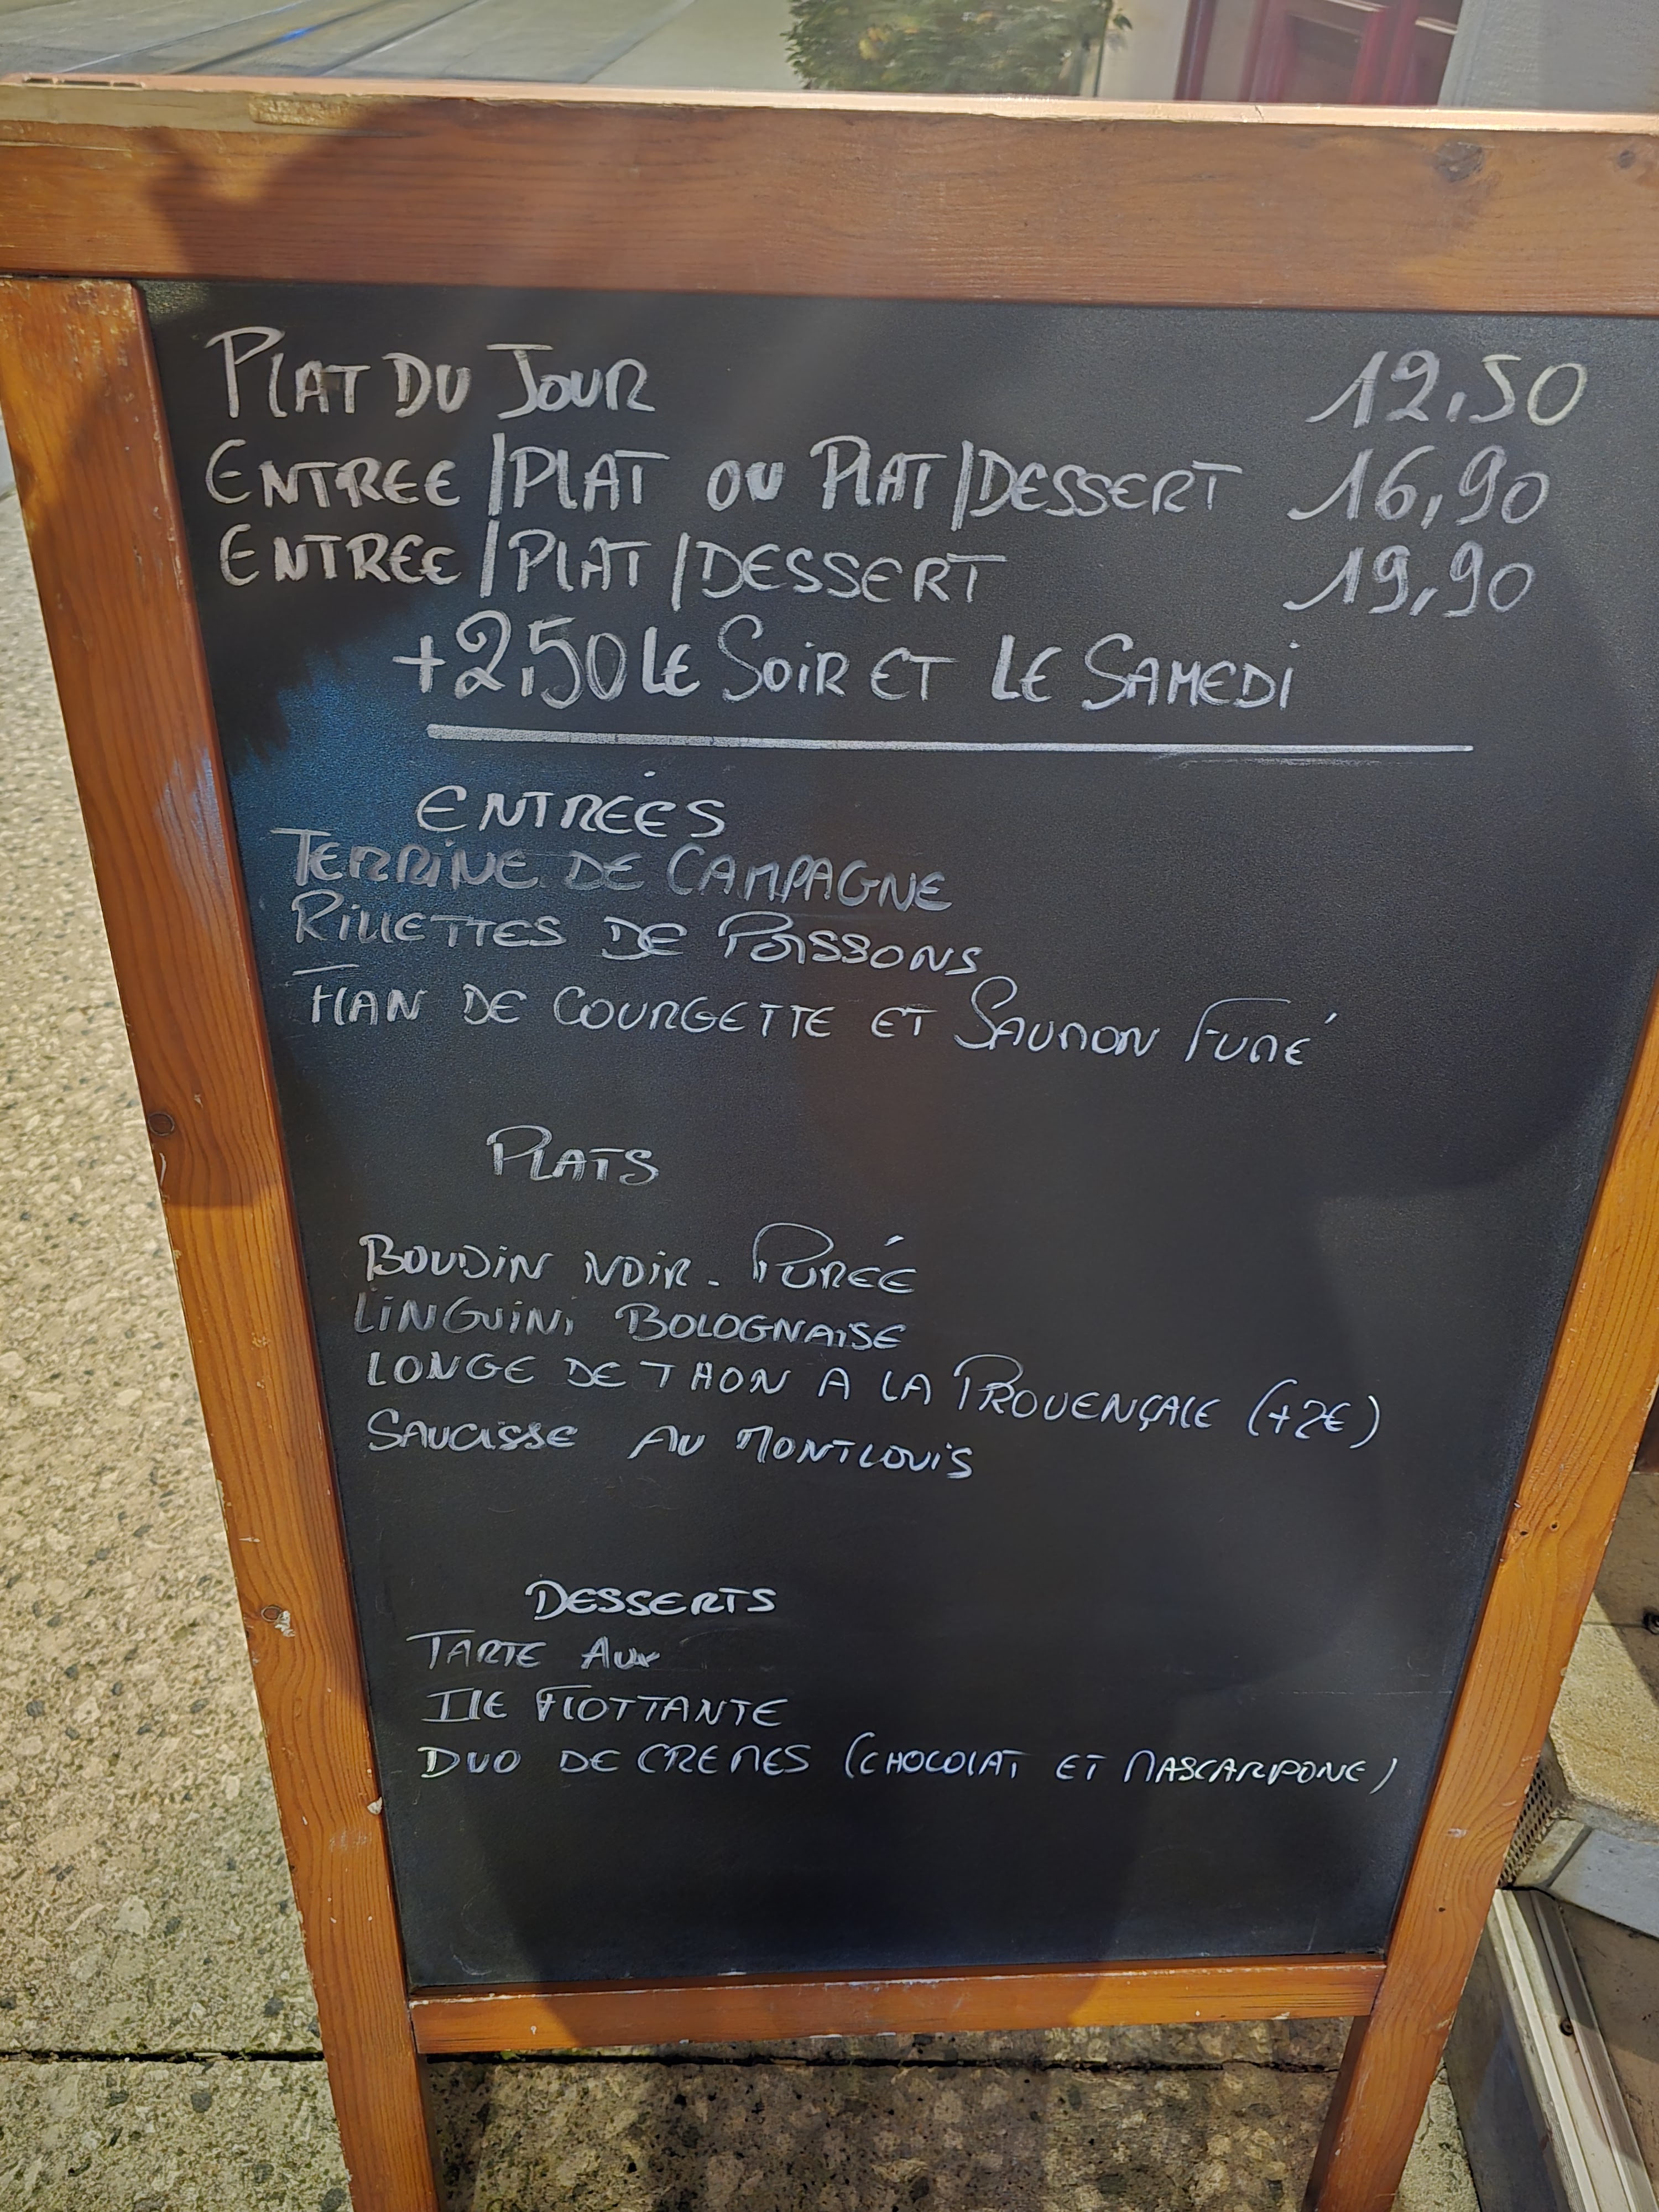 PLAT DU JOUR 12,50
ENTREE/PLAT OU PLAT/DESSERT 16,90
ENTREE/PLAT/DESSERT 19,90
+2,50 LE SOIR ET LE SAMEDI
ENTRÉES
TERRINE DE CAMPAGNE
RILLETTES DE POISSONS
FLAN DE COURGETTE ET SAUMON FUMÉ
PLATS
BOUDIN NOIR - PURÉE
LINGUINI BOLOGNAISE
LONGE DE THON A LA PROVENÇALE (+2€)
SAUCISSE AU MONTLOUIS
DESSERTS
TARTE AUX
ILE FLOTTANTE
DUO DE CREMES (CHOCOLAT ET MASCARPONE)